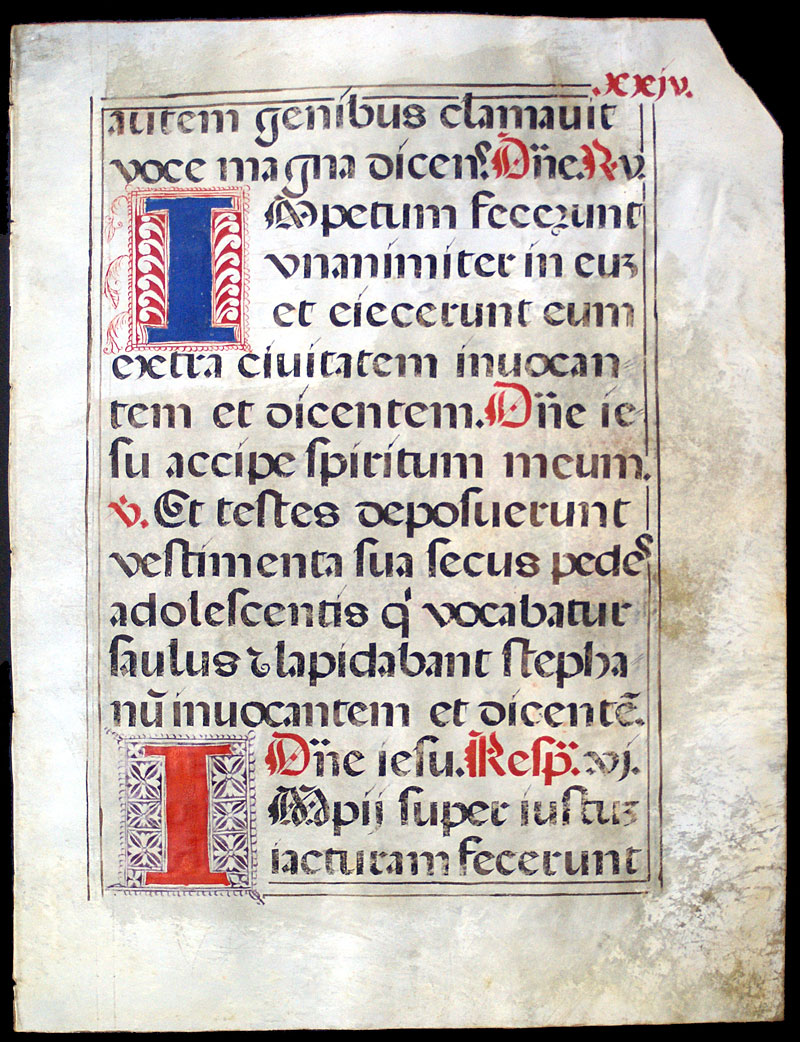 xxiv.
autem genibus clamauit
voce magna dicens. Dñe. R. v.
IMpetum fecerunt
vnanimiter in euʒ
et eiecerunt eum
extra ciuitatem inuocan=
tem et dicentem. Dñe ie=
su accipe spiritum meum.
v̈. Et testes deposuerunt
vestimenta sua secus pedes
adolescentis q' vocabatur
saulus ⁊ lapidabant stepha
nū inuocantem et dicentē.
Dñe iesu. Resp̈. vj.
IMpij super iustuʒ
iacturam fecerunt